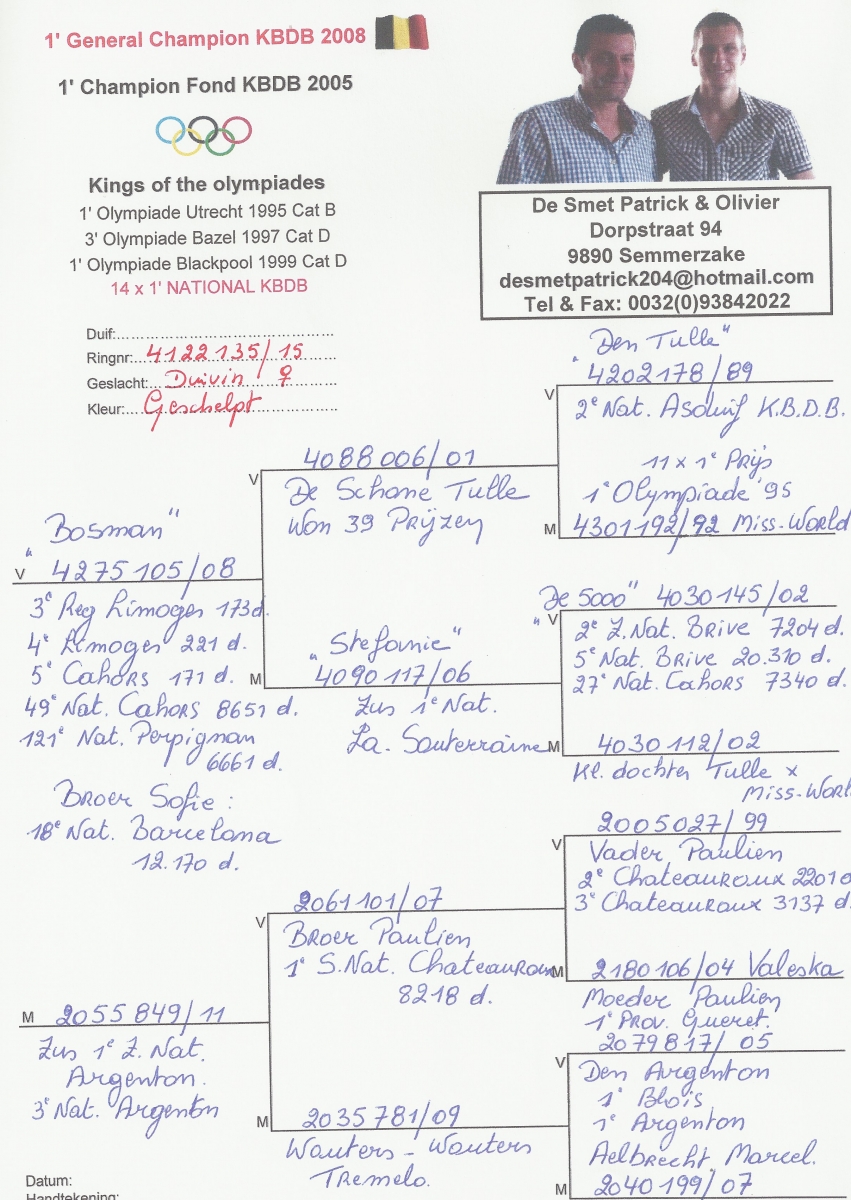 1' General Champion KBDB 2008
1' Champion Fond KBDB 2005
Kings of the olympiades
1' Olympiade Utrecht 1995 Cat B
3' Olympiade Bazel 1997 Cat D
1' Olympiade Blackpool 1999 Cat D
14 x 1' NATIONAL KBDB
De Smet Patrick & Olivier
Dorpstraat 94
9890 Semmerzake
desmetpatrick204@hotmail.com
Tel & Fax: 0032(0)93842022
Duif:
Ringnr: 4122135/15
Geslacht: Duivin ♀
Kleur: Geschelpt
"Bosman"
V 4275105/08
3e Reg Limoges 173d.
4e Limoges 221 d.
5e Cahors 171 d.
49e Nat. Cahors 8651 d.
121e Nat. Perpignan
6661 d.
Broer Sofie:
18e Nat. Barcelona
12.170 d.
M 2055849/11
Zus 1e Z. Nat.
Argenton.
3e Nat. Argenton
V 4088006/01
De Schone Tulle
Won 39 Prijzen
"Stefanie"
M 4090117/06
Zus 1e Nat.
La Souterraine
V 2061101/07
Broer Paulien
1e S.Nat. Chateauroux
8218 d.
M 2035781/09
Wouters - Wouters
Tremelo.
"Den Tulle"
V 4202178/89
2e Nat. Asduif K.B.D.B.
11 x 1e Prijs
1e Olympiade '95
M 4301192/92 Miss-World
"De 5000" 4030145/02
V
2e Z.Nat. Brive 7204 d.
5e Nat. Brive 20.310 d.
27e Nat. Cahors 7340 d.
M 4030112/02
Kl. dochter Tulle x
Miss-Worl
V 2005027/99
Vader Paulien
2e Chateauroux 2201 d
3e Chateauroux 3137 d.
M 2180106/04 Valeska
Moeder Paulien
1e Prov. Gueret.
V 2079817/05
Den Argenton
1e Blois
1e Argenton
Aelbrecht Marcel.
M 2040199/07
Datum:
Handtekening: